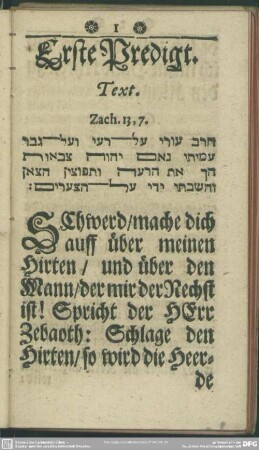 1
Erste Predigt.
Text.
Zach. 13, 7.
חרב עורי על רעי ועל גבר
עמיתי נאם יהוה צבאות
הך את הרעה ותפוצין הצאן
והשבתי ידי על הצערים:
SChwerd/mache dich
auff über meinen
Hirten/ und über den
Mann/der mir der Nechst
ist! Spricht der HErr
Zebaoth: Schlage den
Hirten/so wird die Heer-
de